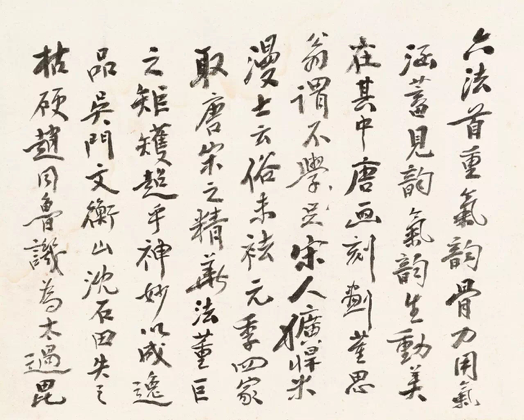 六法首重氣韵骨力用氣
涵蓄見韵氣韵生動美
在其中唐画刻劃董思
翁謂不學宋人獷悍米
漫士云俗未袪元季四家
取唐宋之精華法董巨
之矩矱超乎神妙以成逸
品吳門文衡山沈石田失之
枯硬趙同魯譏為太過毘